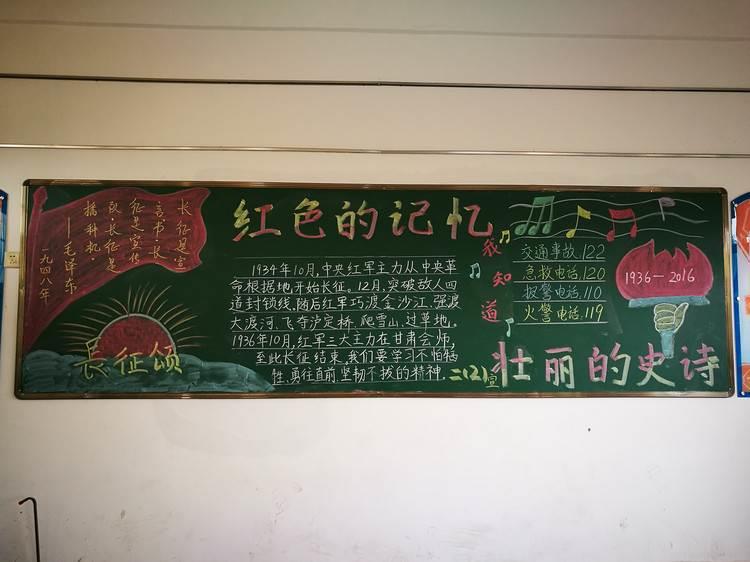 长征是宣
言书,长
征是宣传
队长征是
播种机.
——毛泽东
一九四八年
長征颂
红色的记忆
1934年10月,中央红军主力从中央革
命根据地开始长征。12月,突破敌人四
道封锁线,随后红军巧渡金沙江,强渡
大渡河,飞夺泸定桥,爬雪山,过草地,
1936年10月,红军三大主力在甘肃会师,
至此长征结束,我们要学习不怕牺
牲,勇往直前,坚韧不拔的精神.
二(2)宣
我知道
交通事故.122
急救电话.120
报警电话.110
火警电话.119
1936—2016
壮丽的史诗